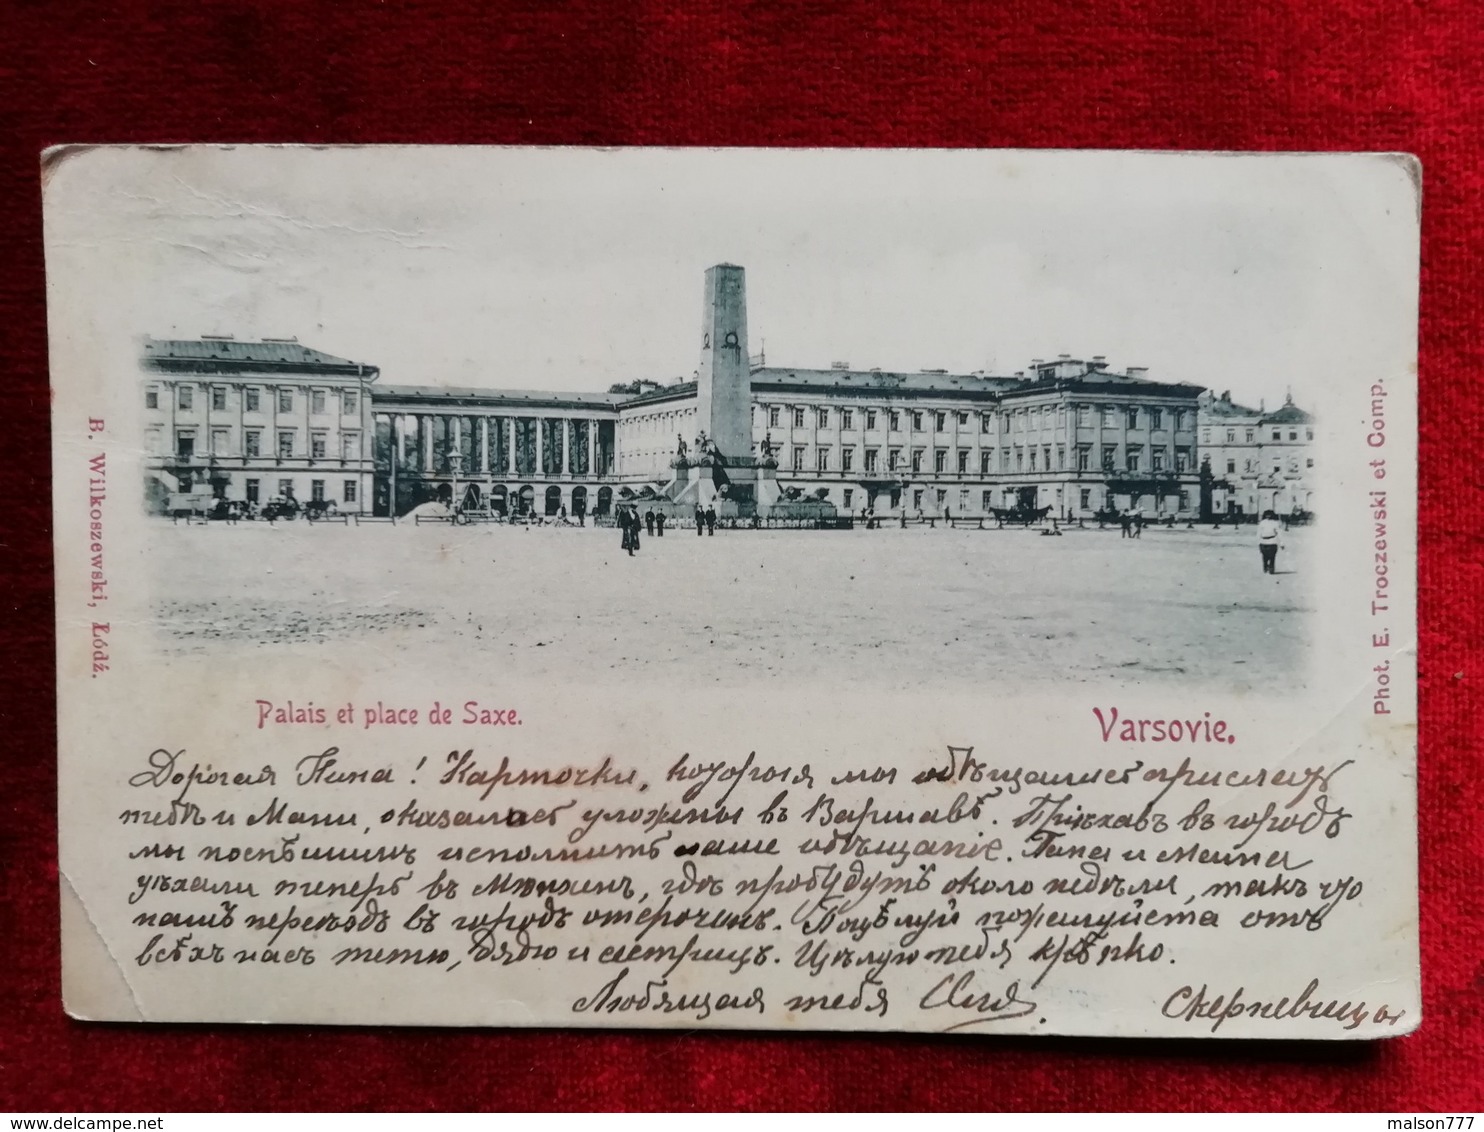 B. Wilkoszewski, Łódź.
Phot. E. Troczewski et Comp.
Palais et place de Saxe.
Varsovie.
Дорогая Нина! Карточки, которыя мы обѣщались прислать
тебѣ и Мани, оказались уложены въ Варшавѣ. Пріѣхавъ въ городъ
мы поспѣшимъ исполнить наше обѣщаніе. Папа и мама
уѣхали теперь въ Мюнхенъ, гдѣ пробудутъ около недѣли, такъ что
нашъ переѣздъ въ городъ отсроченъ. Поцѣлуй пожалуйста отъ
всѣхъ насъ тетю, дядю и сестрицъ. Цѣлую тебя крѣпко.
Любящая тебя
Скерневицы
delcampe.net
malson777